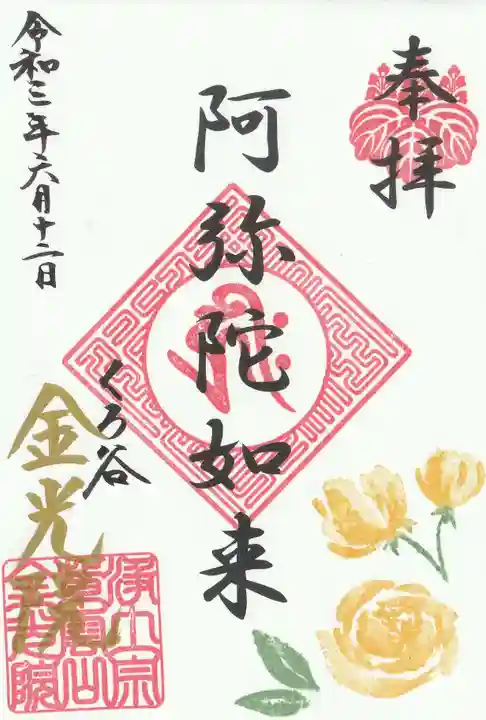 奉拝
阿弥陀如来
令和三年六月十二日
くろ谷
金光院
浄土宗
紫雲山
金光院